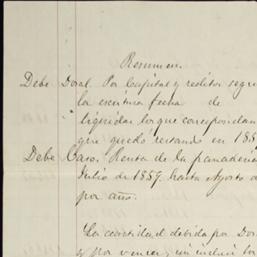 Resumen
Debe Doral. Por Capital y reditos segun
la escritura fecha de
liquidar lo que correspondan
que quedó restando en 188
Debe Caso. Renta de la panaderia
Julio de 1889. hasta Agosto d
por año.
La cantidad debida por Dor
y por vencer, sin incluir los